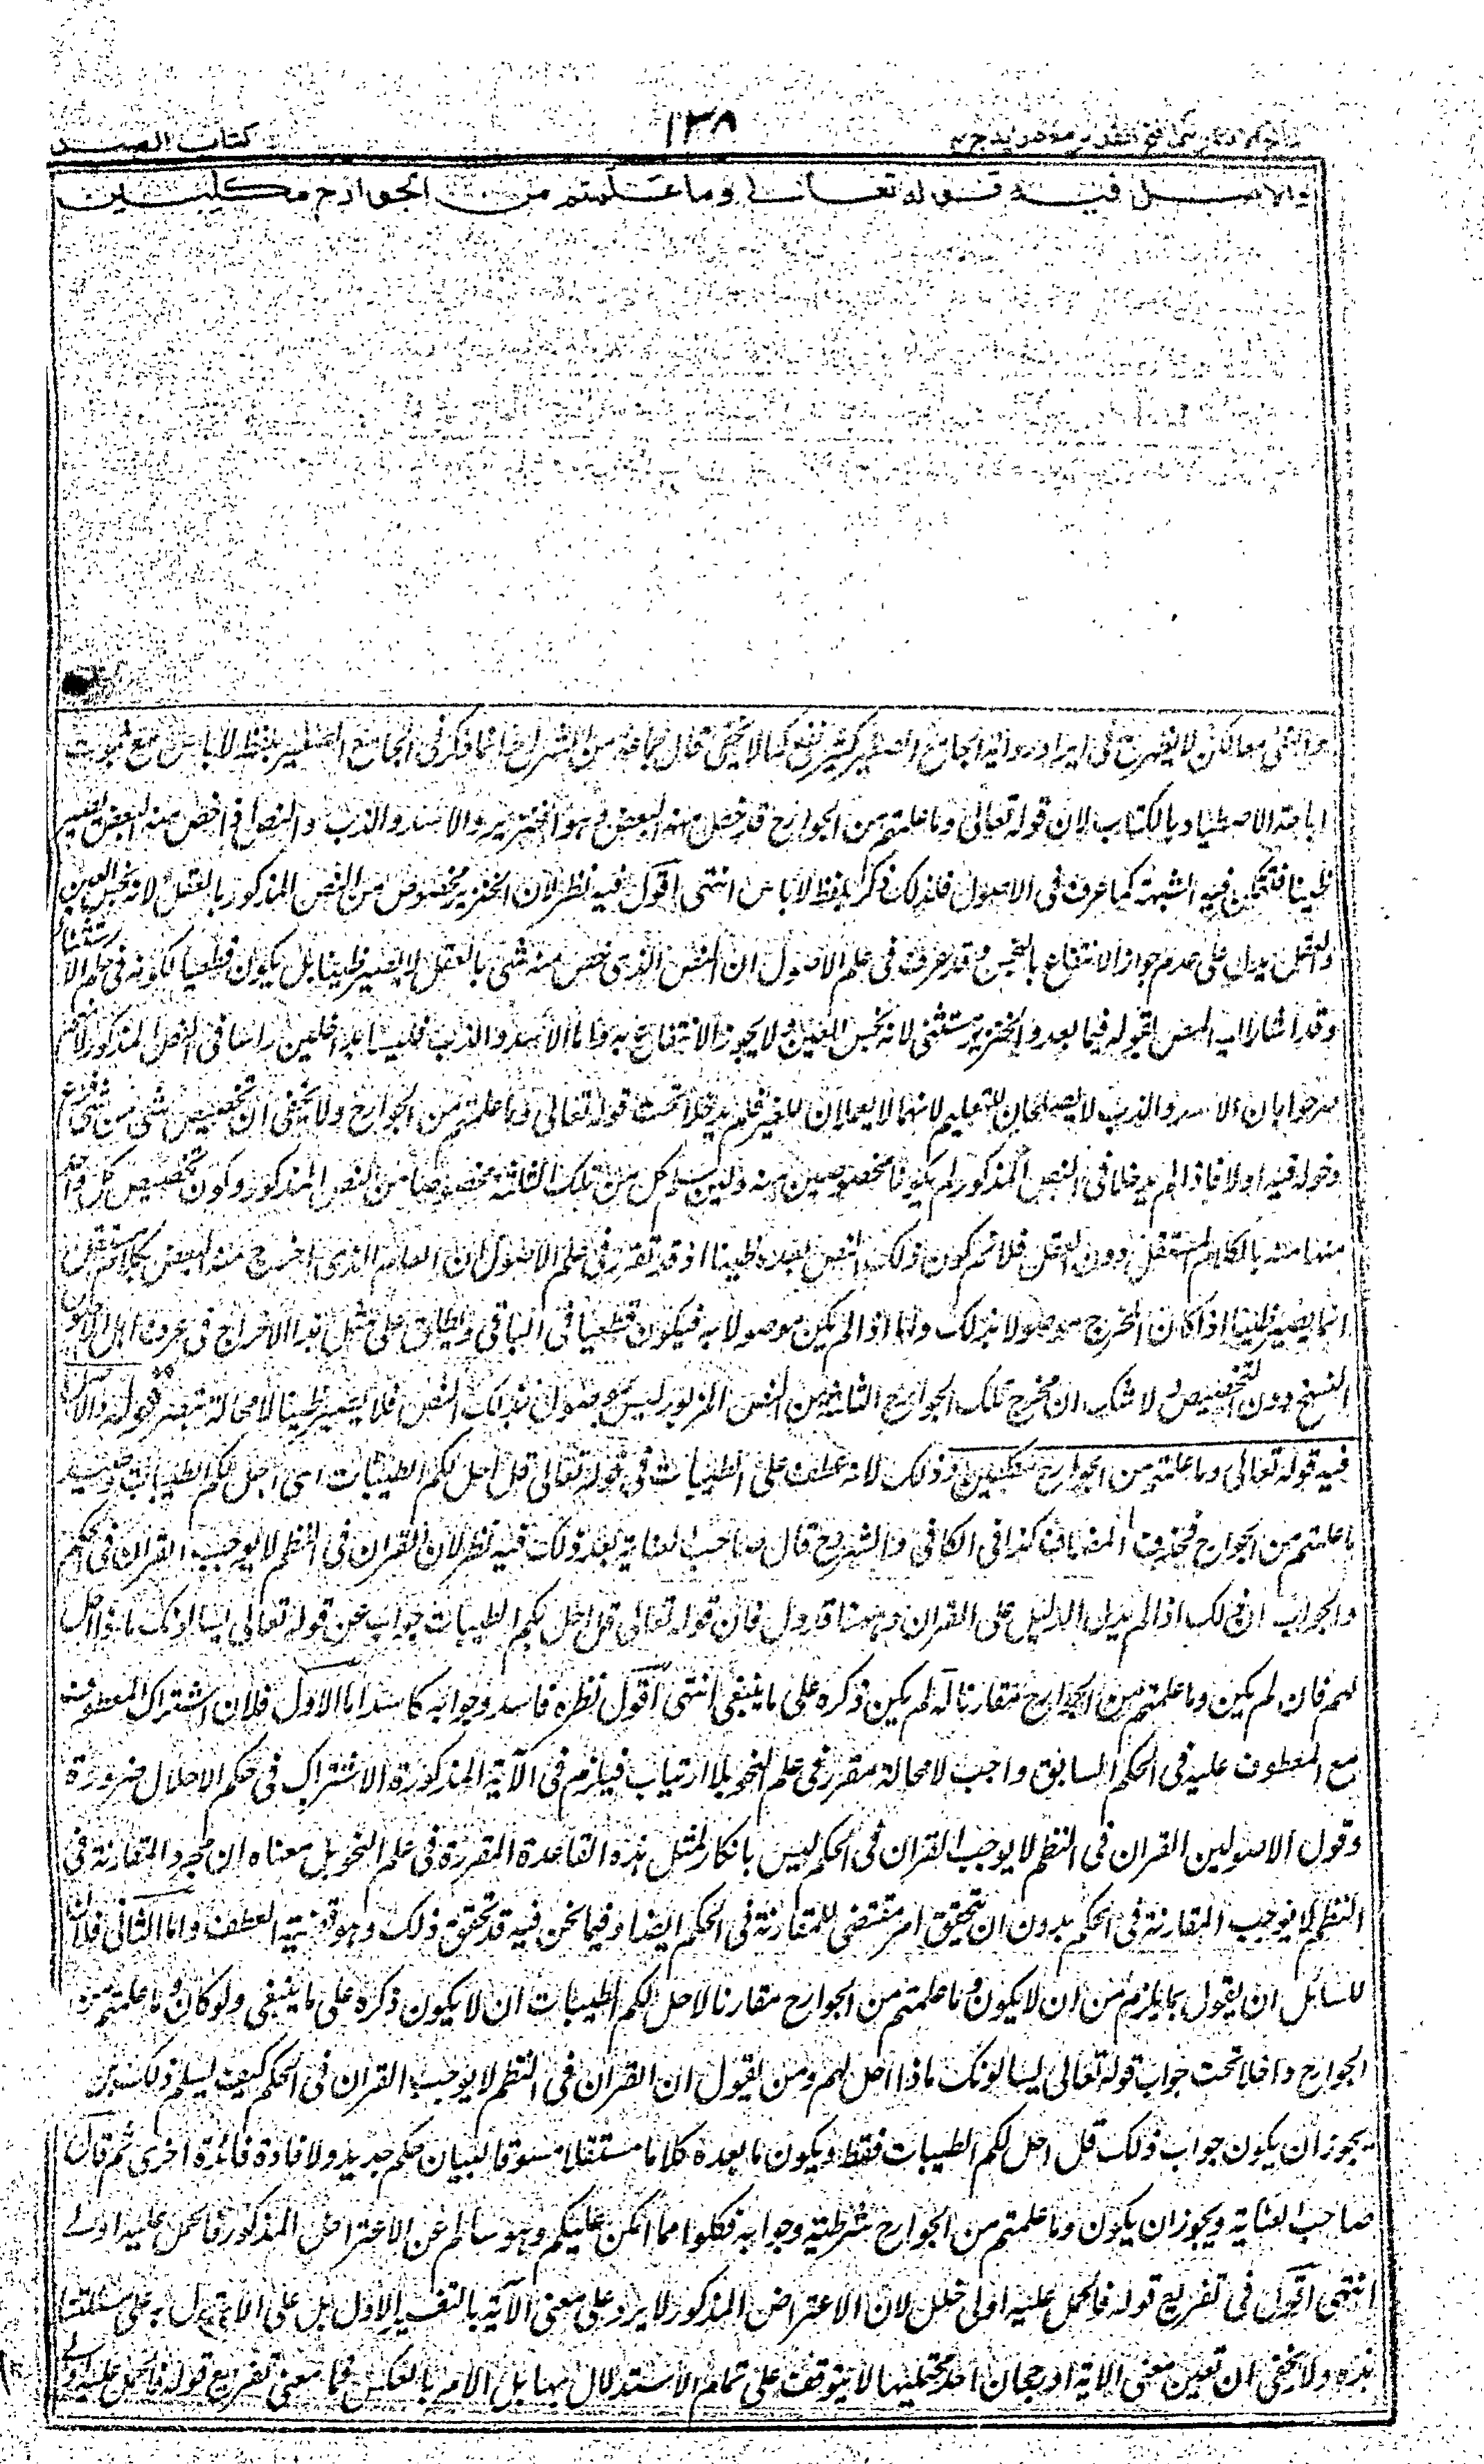 نتائج الافكار تكملة فتح القدير مع هدايه ج ٤
١٣٨
كتاب الصيد
والاصل فيه قوله تعالى وما علمتم من الجوارح مكلبين
معالكن لا يظهر فى ايراد رواية الجامع الصغير كثير نفع كما لا يخفى قال جماعة من الشراح انما ذكر فى الجامع الصغير بلفظ لا باس مع ثبوت
اباحة الاصطياد بالكتاب لان قوله تعالى وما علمتم من الجوارح قد خص منه البعض وهو الخنزير والاسد والدب والنص اذا خص منه البعض يصير
ظنيا فتمكن فيه الشبهة كما عرف فى الاصول فلذلك ذكر بلفظ لا باس انتهى اقول فيه نظر لان الخنزير مخصوص من النص المذكور بالعقل لانه نجس العين
والعقل يدل على عدم جواز الانتفاع بالنجس وقد عرف فى علم الاصول ان النص الذى خص منه شئ بالعقل لا يصير ظنيا بل يكون قطعيا لكونه فى حكم الاستثناء
وقد اشار اليه المص بقوله فيما بعد والخنزير مستثنى لانه نجس العين ولا يجوز الانتفاع به واما الاسد والدب فليسا بداخلين راسا فى النص المذكور لانهم
صرحوا بان الاسد والدب لا يصلحان للتعليم لانهما لا يعملان للغير فلم يدخلا تحت قوله تعالى وما علمتم من الجوارح ولا يخفى ان تخصيص شئ من شئ فرع
دخوله فيه اولا فاذا لم يدخلا فى النص المذكور لم يكونا مخصوصين منه ولئن سلم كل من تلك الثلثة مخصوصا من النص المذكور وكون تخصيص كل واحد
منها منه بالكلام المستقل دون العقل فلا نم كون ذلك النص بعده ظنيا اذ قد تقرر فى علم الاصول ان العام الذى اخرج منه البعض بكلام مستقل
انما يصير ظنيا اذا كان المخرج موصولا بذلك واما اذا لم يكن موصولا به فيكون قطعيا فى الباقى ويطلق على مثل هذا الاخراج فى عرف اهل الاصول
النسخ دون التخصيص ولا شك ان مخرج تلك الجوارح الثلثة من النص المزبور ليس بموصول بذلك النص فلا يصير ظنيا لا محالة تبصر قوله والاصل
فيه قوله تعالى وما علمتم من الجوارح مكلبين وذلك لانه عطف على الطيبات فى قوله تعالى قل احل لكم الطيبات اى احل لكم الطيبات وصيد
ما علمتم من الجوارح فحذف المضاف كذا فى الكافى والشروح قال صاحب العناية بعد ذلك فيه نظر لان القران فى النظم لا يوجب القران فى الحكم
والجواب ان ذلك اذا لم يدل الدليل على القران وههنا قد دل فان قوله تعالى قل احل لكم الطيبات جواب عن قوله تعالى يسالونك ماذا احل
لهم فان لم يكن وما علمتم من الجوارح مقارنا له لم يكن ذكره على ما ينبغى انتهى اقول نظره فاسد وجوابه كاسد اما الاول فلان اشتراك المعطوف
مع المعطوف عليه فى الحكم السابق واجب لا محالة مقرر فى علم النحو بلا ارتياب فيلزم فى الآية المذكورة الاشتراك فى حكم الاحلال ضرورة
وقول الاصولين القران فى النظم لا يوجب القران فى الحكم ليس بانكار لمثل هذه القاعدة المقررة فى علم النحو بل معناه ان مجرد المقارنة فى
النظم لا يوجب المقارنة فى الحكم بدون ان يتحقق امر مقتضى للمقارنة فى الحكم ايضا وفيما نحن فيه قد تحقق ذلك وهو قرينة العطف واما الثانى فلان
للسائل ان يقول بما يلزم من ان لا يكون وما علمتم من الجوارح مقارنا لاحل لكم الطيبات ان لا يكون ذكره على ما ينبغى ولو كان وما علمتم من
الجوارح داخلا تحت جواب قوله تعالى يسالونك ماذا احل لهم ومن يقول ان القران فى النظم لا يوجب القران فى الحكم كيف يسلم ذلك بل
يجوز ان يكون جواب ذلك قل احل لكم الطيبات فقط ويكون ما بعده كلاما مستقلا مسوقا لبيان حكم جديد ولافادة فائدة اخرى ثم قال
صاحب العناية ويجوز ان يكون وما علمتم من الجوارح شرطية وجوابه فكلوا مما امسكن عليكم وهو سالم عن الاعتراض المذكور فالحمل عليه اولى
انتهى اقول فى تفريع قوله فالحمل عليه اولى خلل لان الاعتراض المذكور لا يرد على معنى الآية بالتفسير الاول بل على الاستدلال به على مسئلتنا
هذه ولا يخفى ان تعيين معنى الآية او رجحان احد محتمليها لا يتوقف على تمام الاستدلال بها بل الامر بالعكس فما معنى تفريع قوله فالحمل عليه اولى